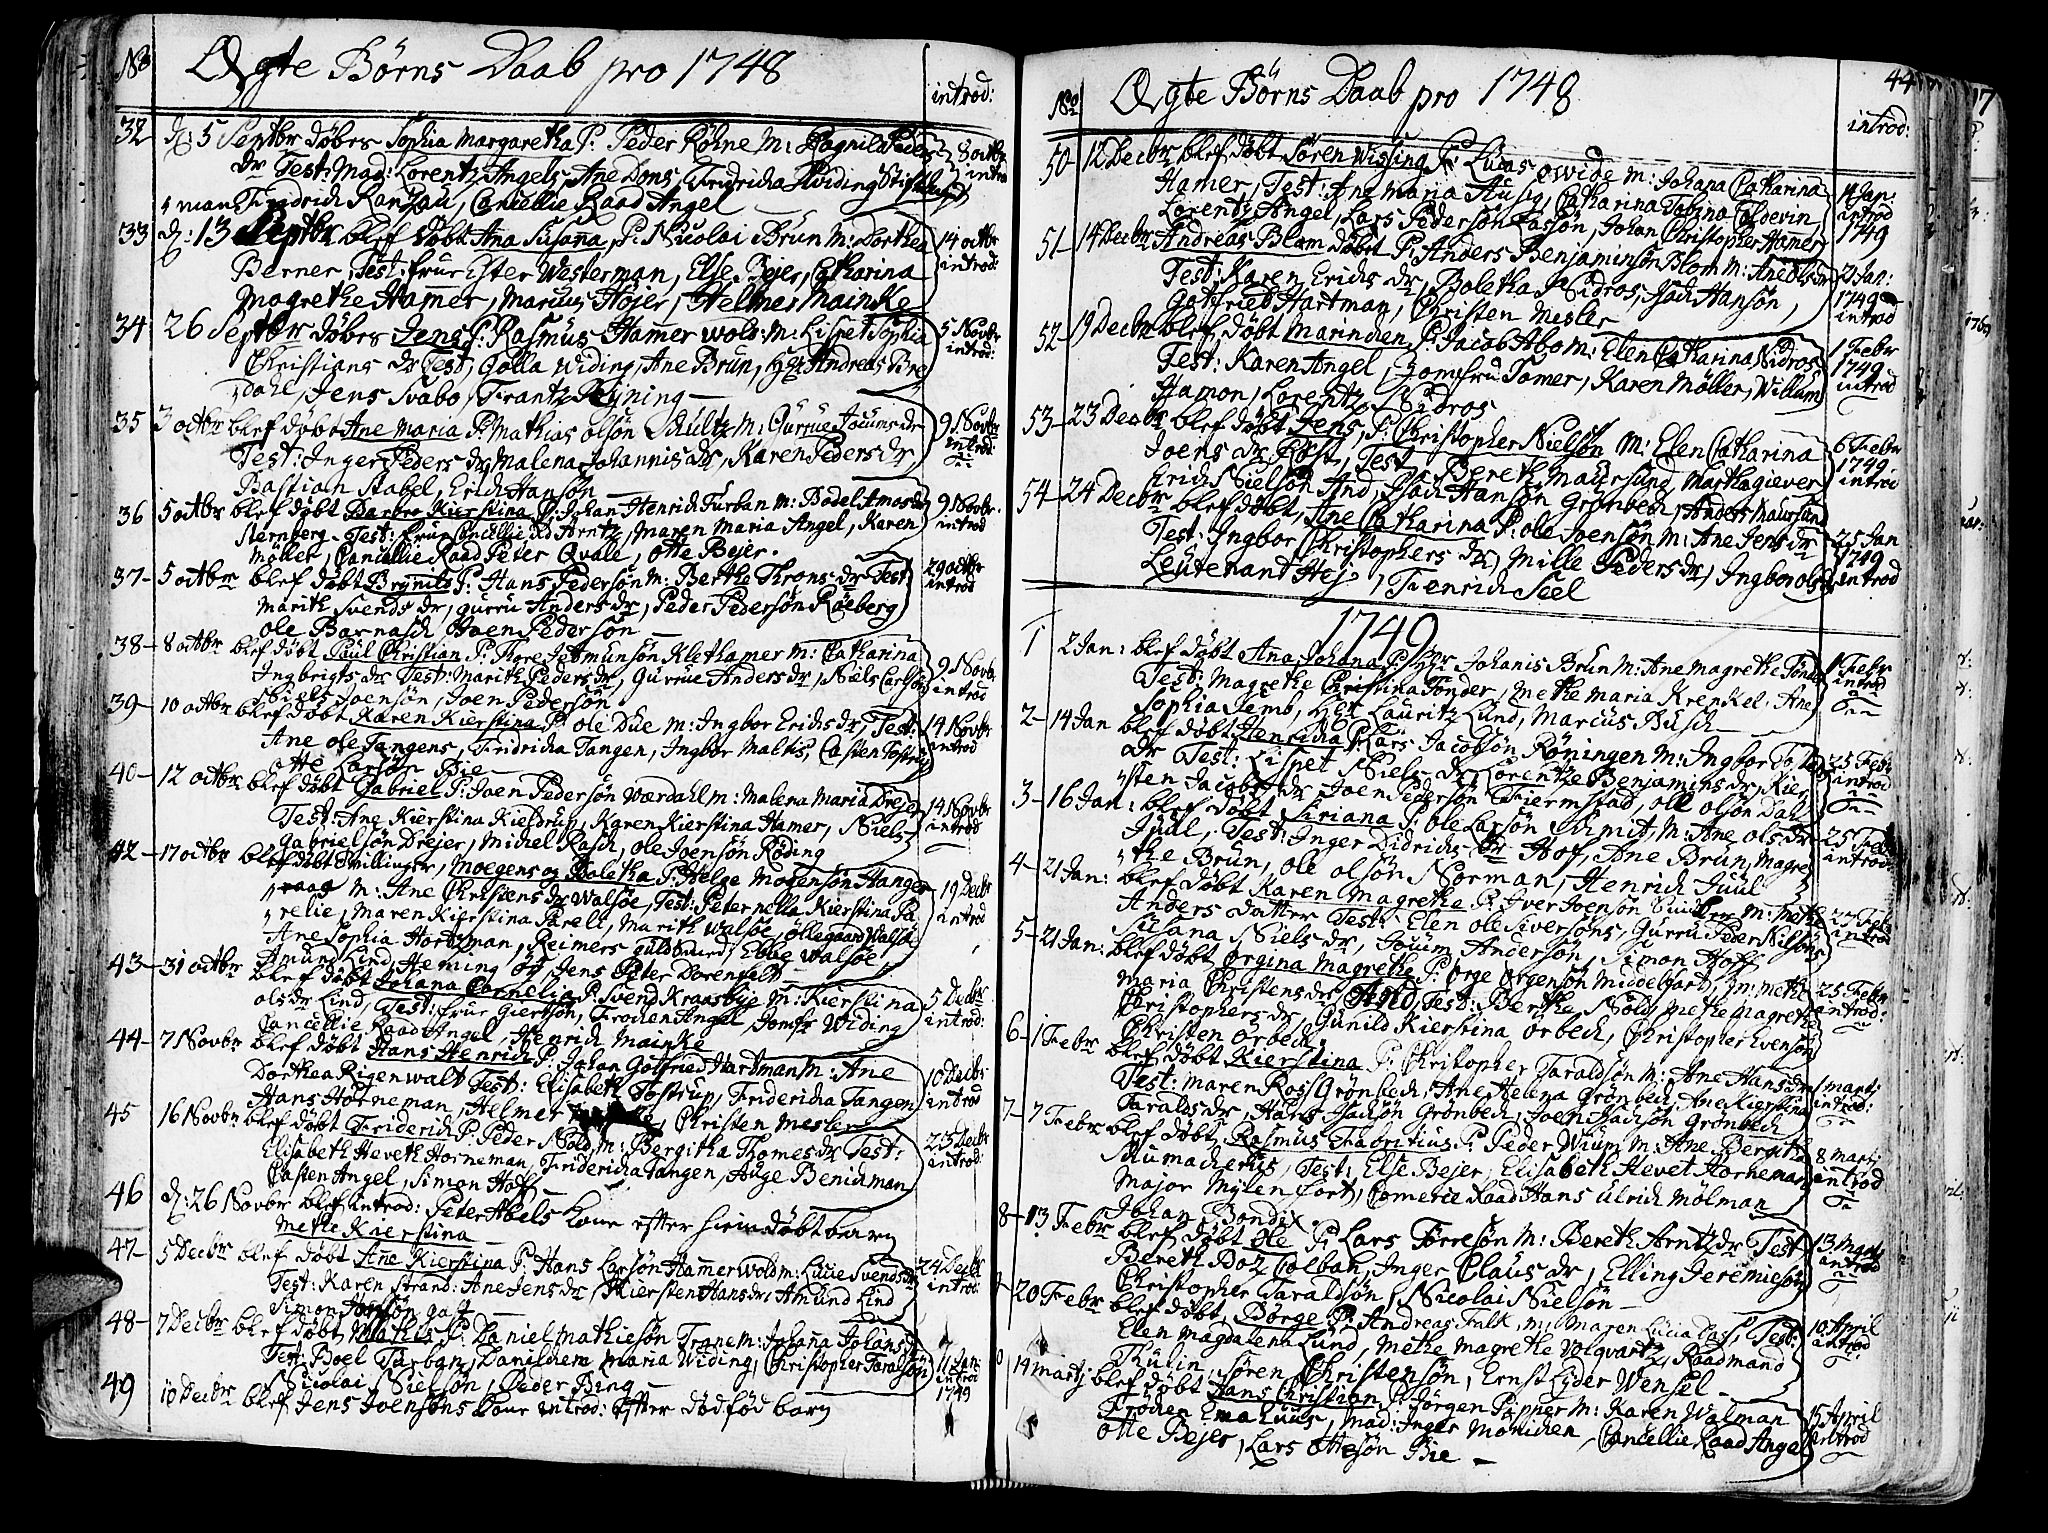 No Ægte Börns Daab pro 1748
introd:
32 d: 5 Septbr döbes Sophia Margaretha P: Peder Köhne M: Pagnild Peders
dr Test: Mad: Lorentz Angels, Ane Dons, Fridricha Hviding
Fridrich Ranzau, Cancellie Raad Angel
8 octbr introd
33 d: 13 Septbr blef döbt Ana Susana, P: Nicolai Brun M: Dorthea
Berner, Test: frue Ester Westerman, Else Bejer, Catharina
Magrethe Hamer, Marcus Höjer, Helmer Mainke
14 octbr introd:
34 26 Septbr döbes Jens P: Rasmus Hamerwols: M: Lispet Sophia
Christians dr Test, Golla Widing, Ane Brun, Hr Andreas Bre
dahl, Jens Svabo, Frantz Rÿning
5 Novbr introd:
35 3 octbr blef döbt Ane Maria P: Mathias Olsön Schultz M: Gurrue Jouns dr
Test: Inger Peders dr, Malena Johannis dr, Karen Peders dr
Bastian Stabel, Erich Hansön
9 Novbr introd:
36 5 octbr blef döbt Barbro Kierstina P: Johan Henrich Turban M: Bodel Amos dr
Sternberg Test: frue Cancellie Rd Arntz, Maren Maria Angel, Karen
Möller, Cancellie Raad Peter Qvale, Otte Bejer.
9 Novbr introd
37 5 octbr blef döbt Brÿnild P: Hans Pedersön M: Berthe Throns dr Test
Marith Svends dr, Gurru Anders dr, Peder Pedersön Röeberg
Ole Barnasch Joen Pedersön
29 octbr introd
38 8 octbr blef döbt Paul Christian P: Tore Jetmunsön Klethamer M: Catharina
Ingbrigts dr Test: Marith Peders dr, Gurrue Anders dr, Niels Carlsön
Joensön, Joen Pedersön
9 Novbr introd
39 10 octbr blef döbt Karen Kierstina P: Ole Due M: Ingbor Erichs dr, Test:
Ane Ole Tangens, Fridricha Tangen, Ingbor Malks, Casten Tostrup
Otte Larsön Bie
14 Novbr introd
40 12 octbr blef döbt Gabriel P: Joen Pedersön Værdahl M: Malena Maria Drejer
Test: Ane Kierstina Kieldrup, Karen Kierstina Hamer, Niels
Gabrielsön Drejer, Michel Rasch, Ole Joensön Röding
14 Novbr introd
42 17 octbr blef döbt Tvillinger, Moegens og Boletha P: Helge Mogensön Hanger
raag M: Ane Christens dr Walsöe, Test: Peternella Kierstina Pa
relie, Maren Kierstina Pareli, Marith Walsöe, Ollegaard Walsöe
Ane Sophia Hortzman, Reimers guldsmed, Ebbe Walsöe
Amund Lind, Heming og Jens Peter Dorenfelt
19 Decbr introd
43 31 octbr blef döbt Johana Cornelia P: Svend Kraasbÿe M: Kierstina
Ols dr Lind, Test: frue Giertsön, Fröchen Angel, Jomfr Widing
Cancellie Raad Angel, Henrich Mainke
5 Decbr introd:
44 7 Novbr blef döbt Hans Henrich P: Johan Gotfried Hartman M: Ane
Dorthea Rigenwalt Test: Elisabeth Tostrup, Fridericha Tangen
Hans Horneman, Helmer, Christen Mesler
10 Decbr introd
45 16 Novbr blef döbt Friderich P: Peder Nold, M: Bergitha Thomes dr Test:
Elisabeth Heveth Horneman, Fridericha Tangen, Auge Benichman
Casten Angel, Simon Hoff
23 Decbr introd:
46 d: 26 Novbr blef introd: Peter Abels Kone efter hjemdöbt barn
Methe Kierstina
47 5 Decbr blef döbt Ane Kierstina P: Hans Larsön Hamerwold M: Lucie Svends dr
Test: Karen Strand: Ane Jens dr, Kiersten Hans dr, Amund Lind
Simon Hansön gast
24 Decbr introd:
48 7 Decbr blef döbt Mathis P: Daniel Mathiesön Trane M: Johana Johans dr
Test: Boel Turban, Danichen Maria Widing, Christopher Taralsön
Nicolai Nielsön, Peder Bing
11 Jan: introd 1749
49 10 Decbr blef Jens Joensöns Kone introd: efter dödfød barn
No Ægte Börns Daab pro 1748
44
introd:
50 12 Decbr blef döbt Sören Wissing P: Lucas Qwide M: Johana Catharina
Hamer, Test: Ane Maria Husig, Catharina Tabina Coloevin,
Lorentz Angel, Lars Pedersön Lasön, Johan Christopher Hamer
4 Jan: introd 1749
51 14 Decbr Andreas Blom döbt P: Anders Benjaminsön Blom M: Ane Ols dr
Test: Karen Erichs dr, Boletha Nidros, Isach Hansön,
Gotfrieb Hartman, Christen Mesler
2 Jan: 1749 introd
52 19 Decbr blef döbt Marinchen P: Jacob Abo M: Elen Catharina Nidros
Test: Karen Angel, Jomfru Tamer, Karen Möller, Willum
Hamon, Lorentz Nidros
1 Febr 1749 introd
53 23 Decbr blef döbt Jens, P: Christopher Nielsön M: Elen Catharina
Joens dr Röst, Test, Bereth Maursund, Martha giever
Erich Nielsön And, Isach Hansön Grönbech, Anders Maursund
6 Febr 1749 introd
54 24 Decbr blef döbt, Ane Catharina P: Ole Joensön M: Ane Jens dr
Test: Ingbor Christophers dr, Mille Peders dr, Ingbor Ols dr
Leutenant Hej, Frenrich Seel
25 Jan 1749 introd
1749
1 2 Jan: blef döbt Ana Johana P: Hr Johanis Brun M: Ane Magrethe Tönder
Test: Magrethe Christina Tönder, Methe Maria Krenkel, Ane
Sophia Jemt, Hr Lauritz Lund, Marcus Busch
1 Febr introd
2 14 Jan blef döbt Henricha P: Lars Jacobsön Röningen M: Ingbor
dr Test: Lispet Niels dr, Lorentze Benjamins dr, Kier
sten Jacobs dr, Joen Pedersön Fiermstad, Ole Olsön Dahl
25 Febr introd
3 16 Jan: blef döbt Siriana P: Ole Larsön Schmit, M: Ane Ols dr
Juul, Test: Inger Didrichs dr Hof, Ane Brun, Magre
the Brun, Ole Olsön Norman, Henrich Juul
25 Febr introd:
4 21 Jan: blef döbt Karen Magrethe P: Iver Joensön M: Methe
Anders datter Test: Elen Ole Siversöns, Gurru Peder Nilsöns
Susana Niels dr, Jouim Andersön, Simon Hoff
23 Febr introd
5 21 Jan: blef döbt Örgina Magrethe P: Örge Örgensön Middelfart, M: Methe
Maria Christens dr And, Test: Berthe Nold, Methe Magrethe
Christophers dr, Gunild Kierstina Orbech, Christopher Evensön
Christen Orbech
25 Febr introd:
6 1 Febr blef döbt Kierstina P: Christopher Taraldsön M: Ane Hans dr
Test: Maren Ross Grönbech, Ane Helena Grönbech, Ane Kierstina
Taralds dr, Hans Isachsön Grönbech, Joen Isachsön Grönbech
1 marti introd:
7 7 Febr blef döbt Rasmus Fabritius P: Peder Wium M: Ane Bergitha
Schumacherus, Test: Else Bejer, Elisabeth Hevet Horneman
Major Mylenfort, Comercie Raad Hans Ulrich Mölman
Johan Bondix
8 marti introd
8 13 Febr blef döbt Ole P: Lars Törresön M: Bereth Arntz dr Test
Bereth Botz Colban, Inger Claus dr, Elling Jeremiesön
Christopher Taraldsön, Nicolai Nielsön
13 Marti introd
20 Febr blef döbt, Börge P: Andreas Falk, M: Maren Lucia Das, Test:
Elen Magdalena Lund, Methe Magrethe Volqvartz, Raadmand
Thulin, Sören Christensön, Ernst Eÿder Wensel
10 April introd:
0 14 martj blef döbt Hans Christian P: Jörgen Pipper M: Karen Walman
Fröchen Ema Luus, Mad: Inger Mönichen, Cancellie Raad Angel
Otte Bejer, Lars Ottesön Bie
15 April introd